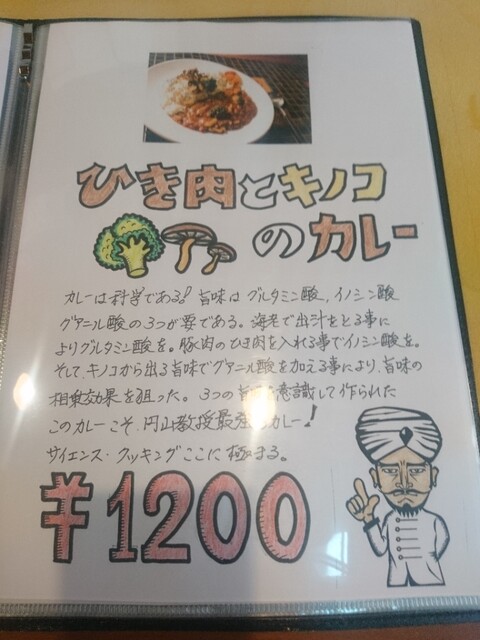 ひき肉とキノコ
のカレー
カレーは科学である!旨味はグルタミン酸、イノシン酸
グアニル酸の3つが要である。海老で出汁をとる事に
よりグルタミン酸を。豚肉のひき肉を入れる事でイノシン酸を。
そして、キノコから出る旨味でグアニル酸を加える事により、旨味の
相乗効果を狙った。3つの旨 意識して作られた
このカレーこそ、円山教授最強 カレー!
サイエンス・クッキングここに極まる。
¥1200